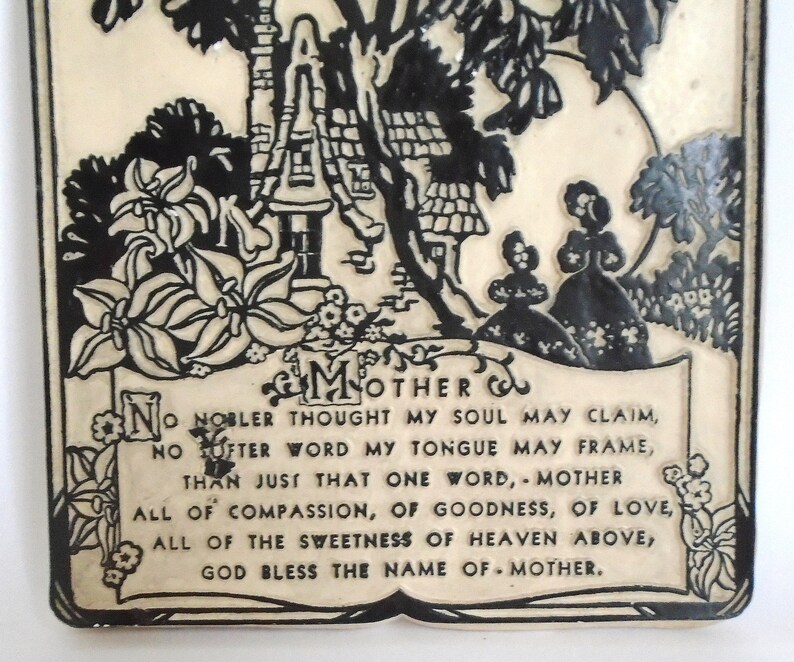 MOTHER
NO NOBLER THOUGHT MY SOUL MAY CLAIM,
NO SOFTER WORD MY TONGUE MAY FRAME,
THAN JUST THAT ONE WORD,-MOTHER
ALL OF COMPASSION, OF GOODNESS, OF LOVE,
ALL OF THE SWEETNESS OF HEAVEN ABOVE,
GOD BLESS THE NAME OF-MOTHER.